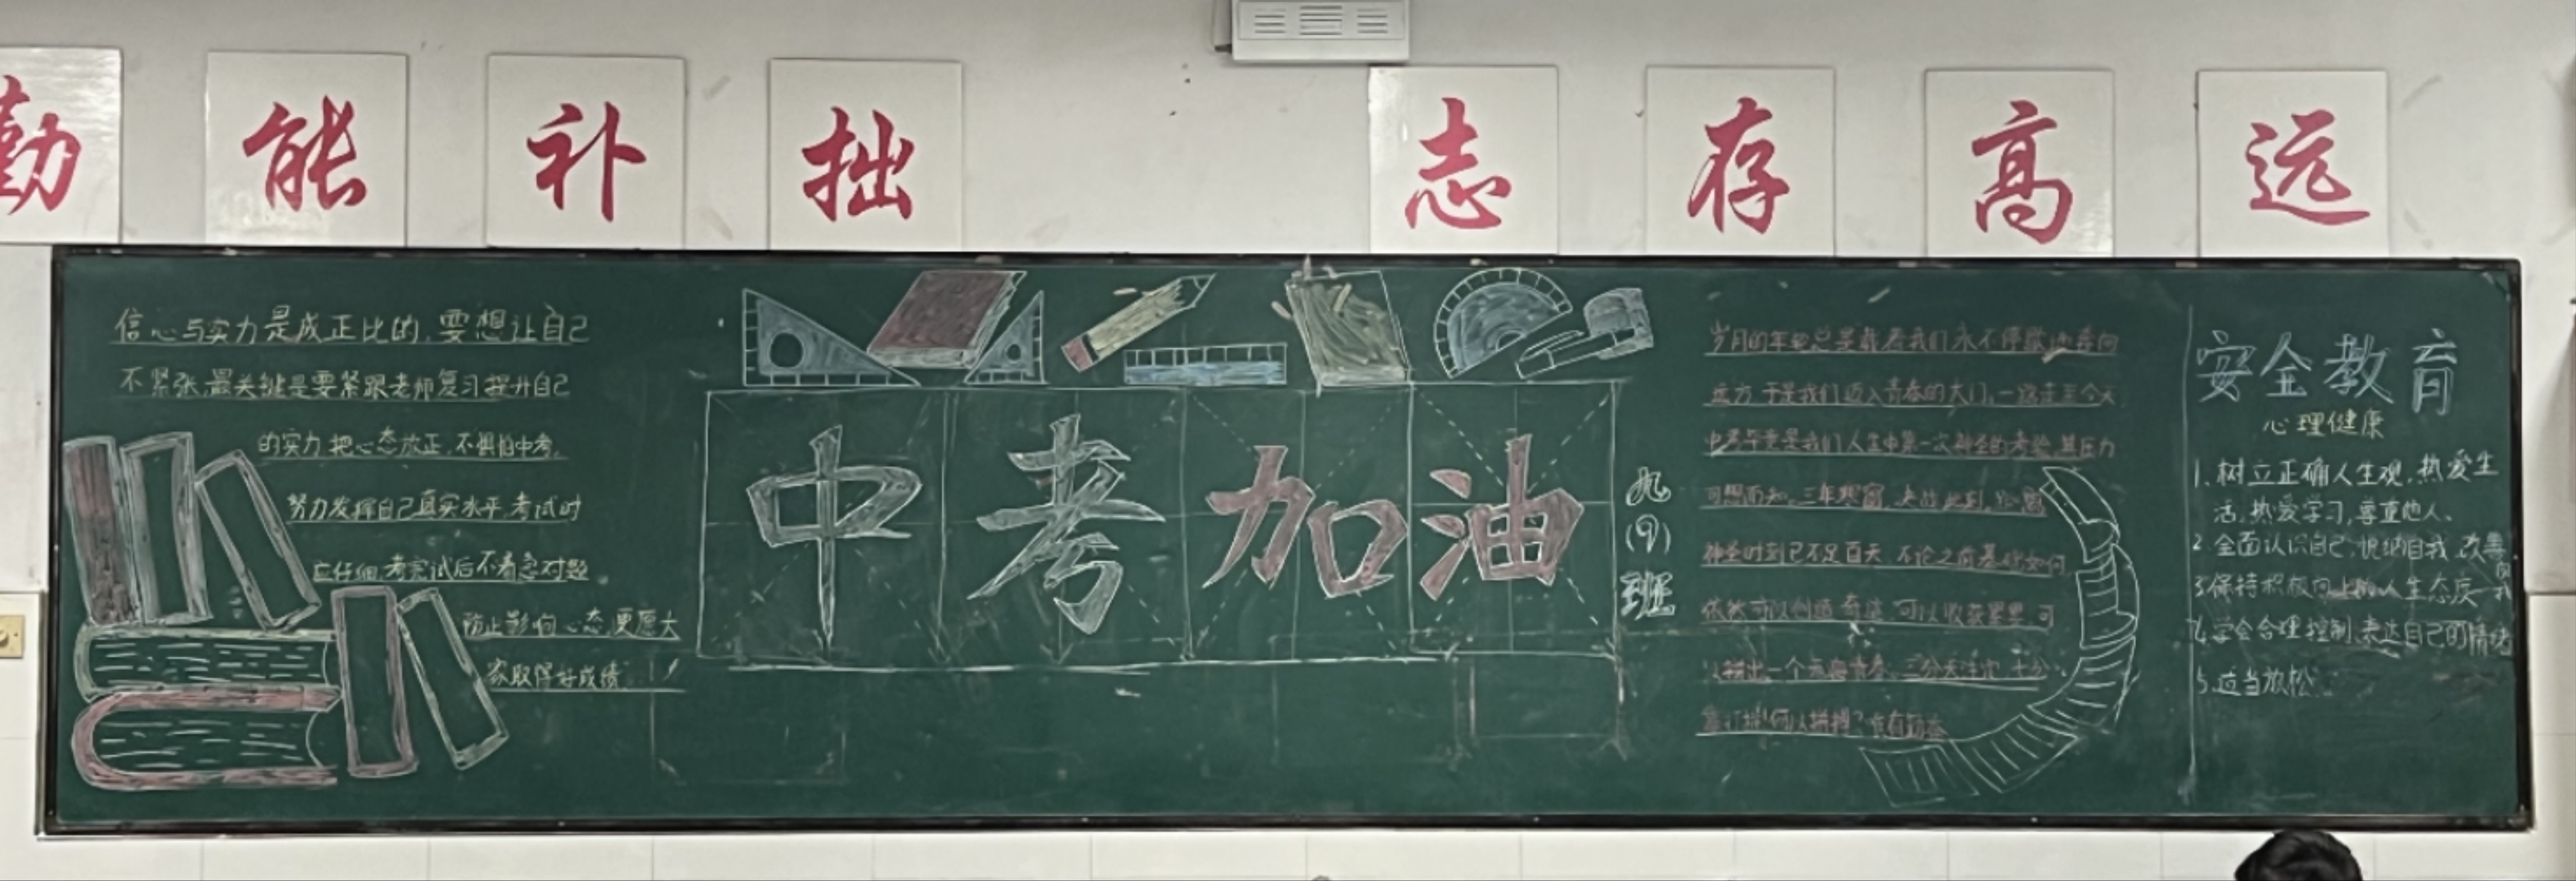 勤能补拙
志存高远
信心与实力是成正比的,要想让自己
不紧张,最关键是要紧跟老师复习提升自己
的实力,把心态放正,不惧怕中考,
努力发挥自己真实水平,考试时
应仔细,考完试后不着急对题
防止影响心态,更愿大
家取得好成绩!
中考加油
九(9)班
岁月的年轮总是靠着我们永不停歇地奔向
远方,于是我们迈入青春的大门,一路走至今天
中考毕竟是我们人生中第一次神圣的考验,其压力
可想而知,三年寒窗,决战此刻,
神圣时刻已不足百天,不论之前基础如何
依然可以创造奇迹,可以收获累累,可
以拼出一个无悔青春,三分天注定,七分
靠打拼,何以拼搏?唯有勤奋
安全教育
心理健康
1.树立正确人生观,热爱生
活,热爱学习,尊重他人、
2.全面认识自己,悦纳自我,改善
3.保持积极向上的人生态度
4.学会合理控制,表达自己的情绪
5.适当放松.